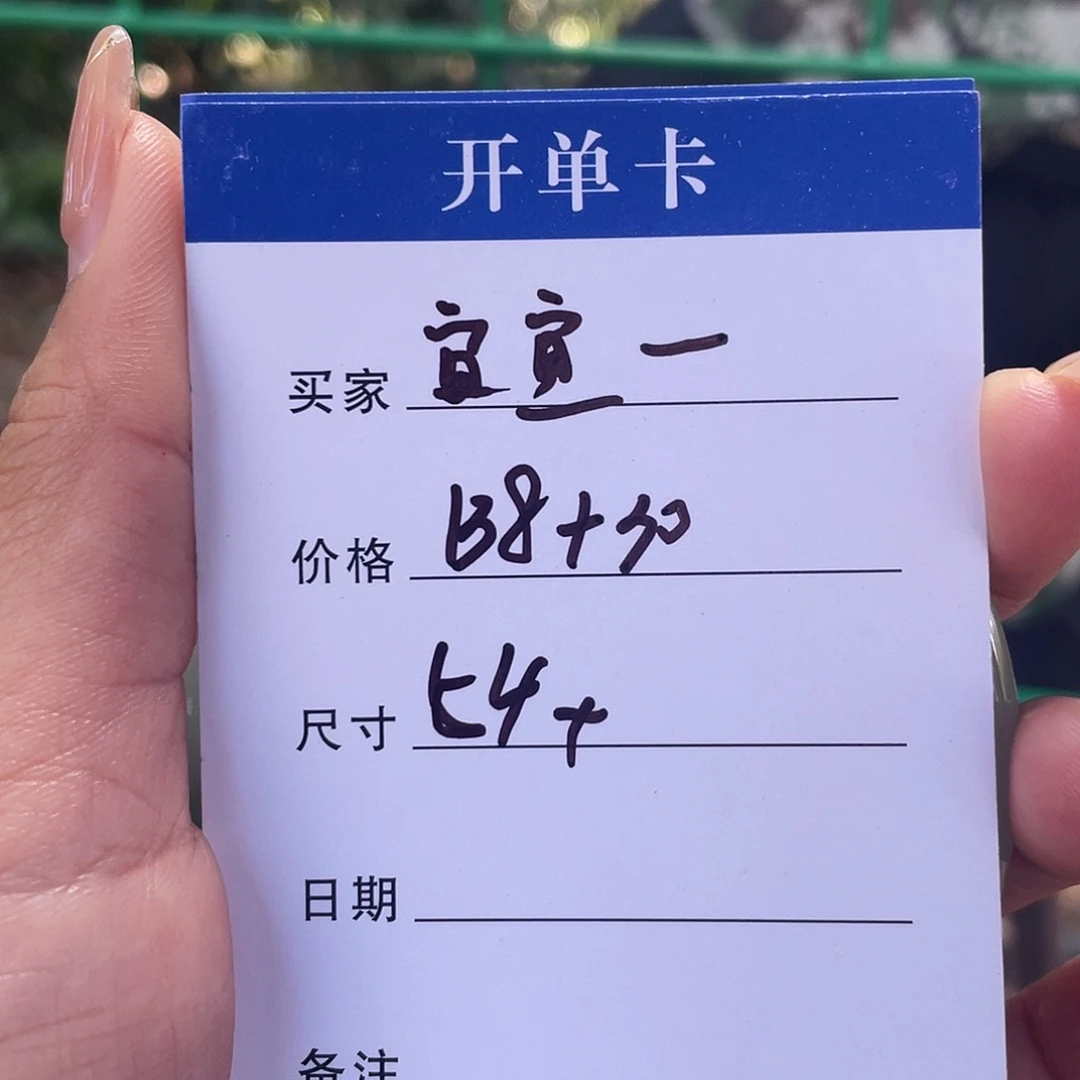 开单卡
买家 宜宾一
价格 138+30
尺寸 54+
日期
备注